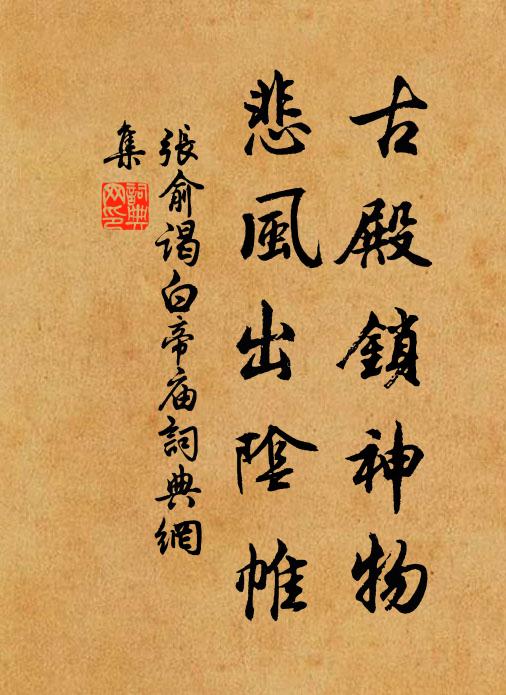 古殿鎖神物
悲風出陰帷
張俞謁白帝庙詞典網
集
詞典
网印